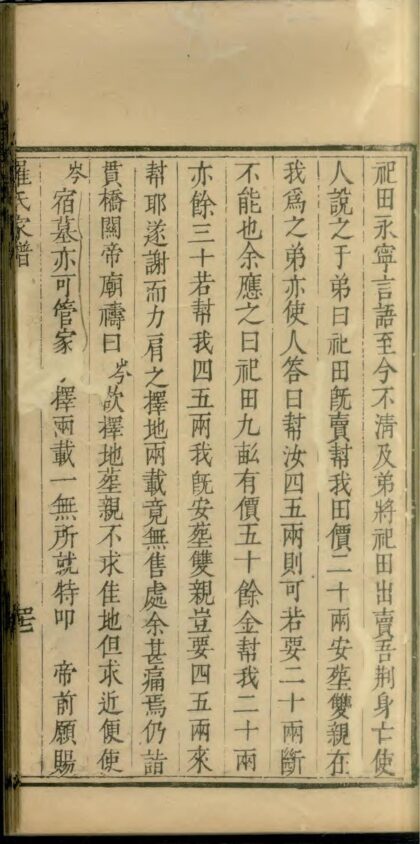 祀田永寧言語至今不清及弟將祀田出賣吾荆身亡使
人說之于弟曰祀田既賣幫我田價二十兩安塟雙親在
我爲之弟亦使人答曰幫汝四五兩則可若要二十兩斷
不能也余應之曰祀田九畝有價五十餘金幫我二十兩
亦餘三十若幫我四五兩我既安塟雙親豈要四五兩來
幫耶遂謝而力肩之擇地兩載竟無售處余甚痛焉仍詣
貫橋關帝廟禱曰岑欲擇地塟親不求佳地但求近便使
岑宿墓亦可管家擇兩載一無所就特叩 帝前願賜
羅氏家譜